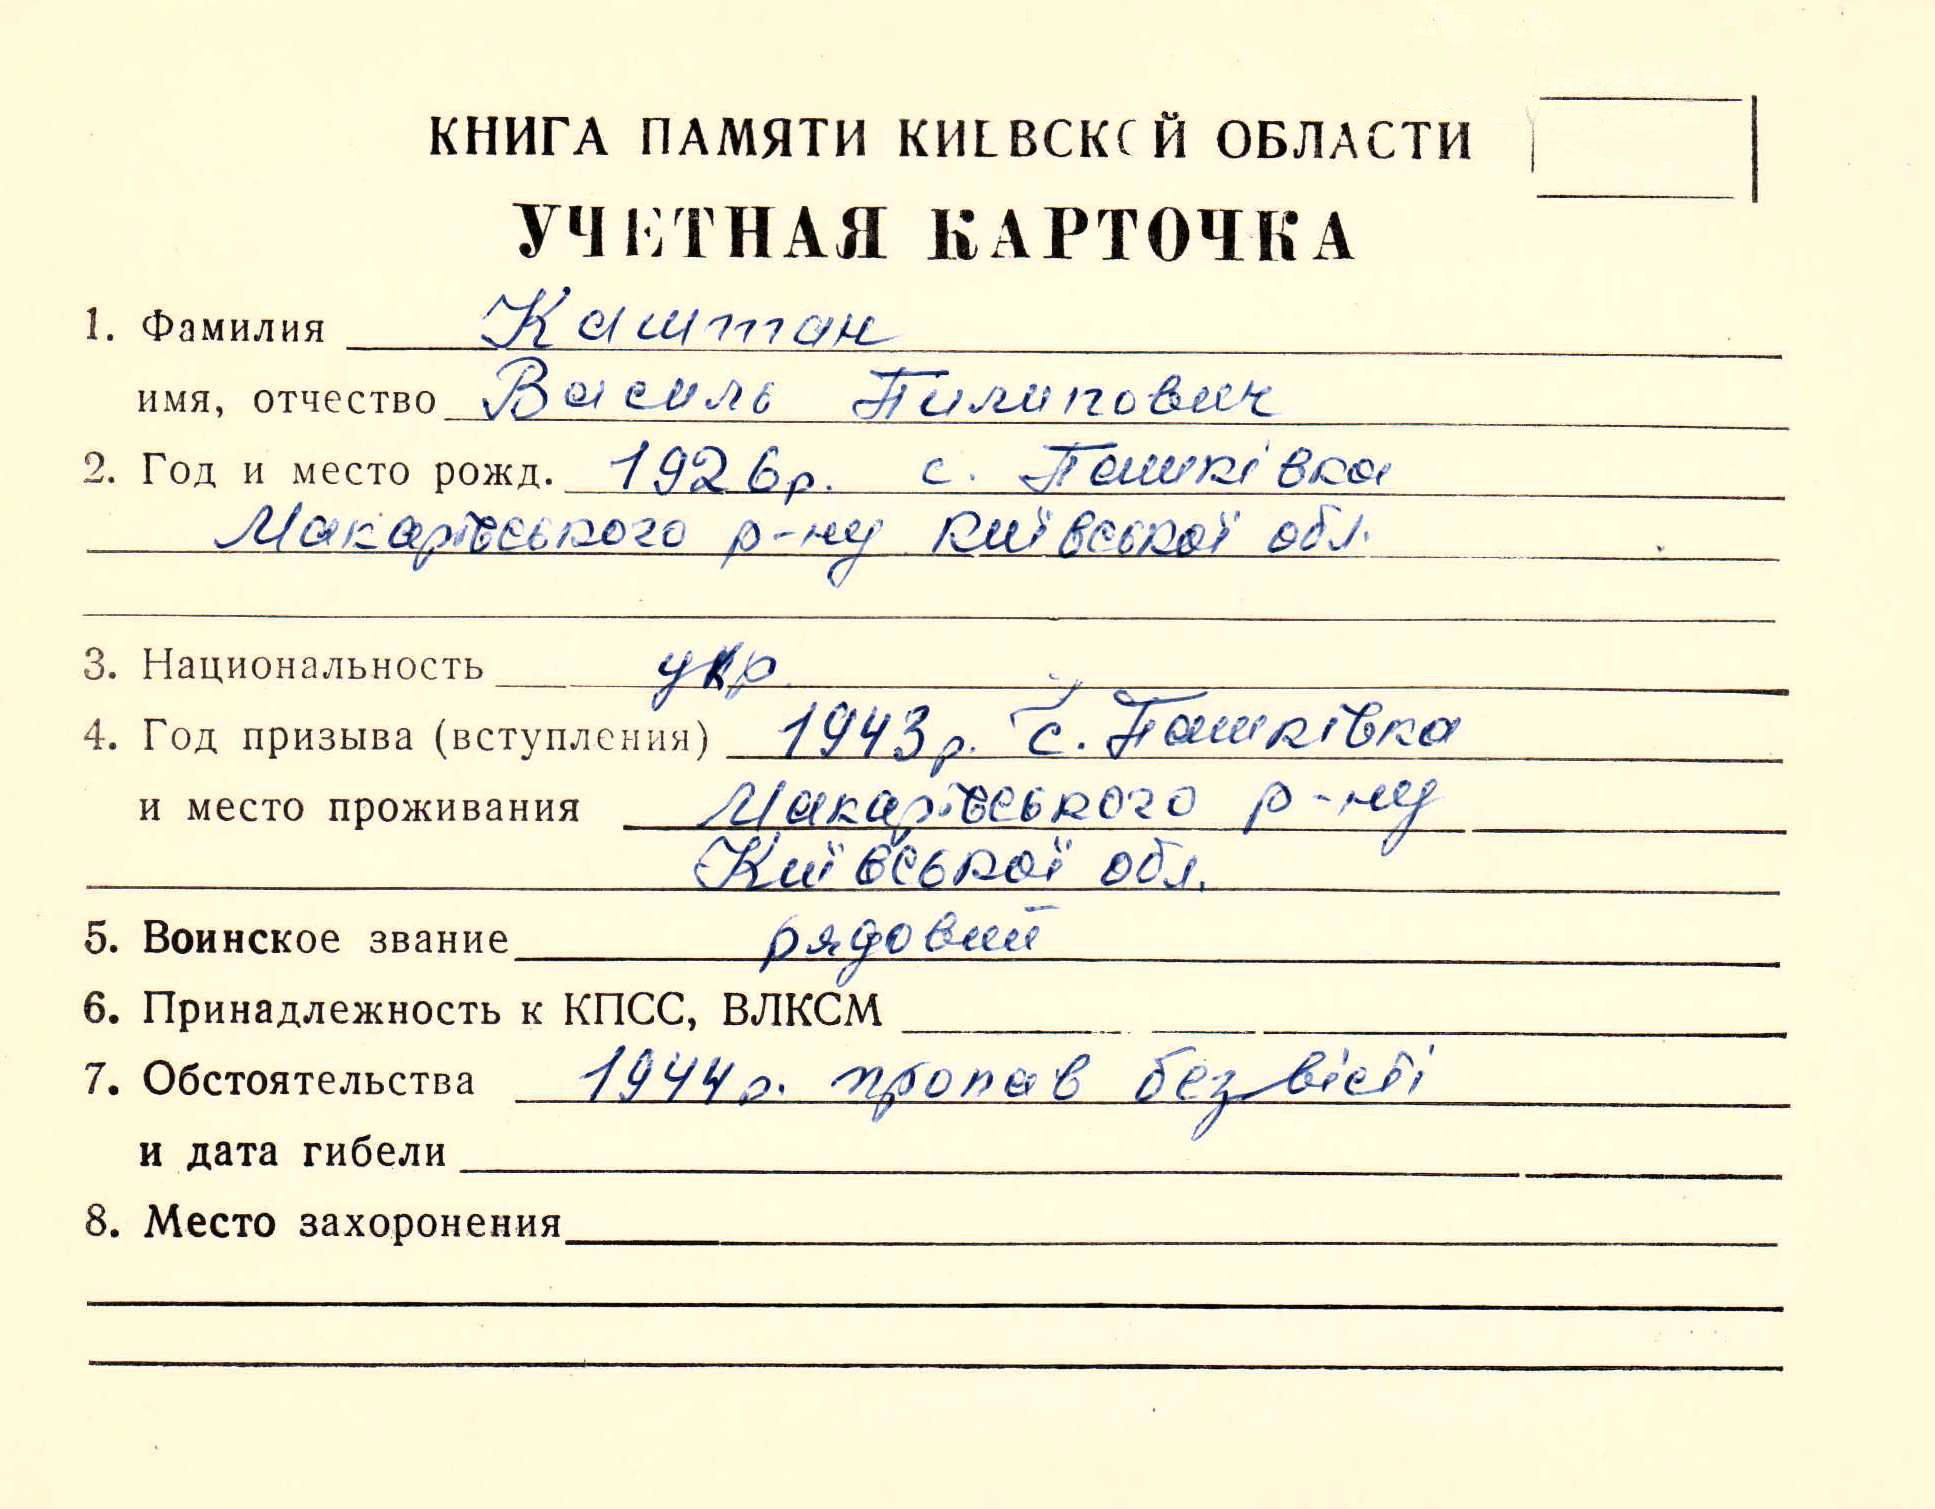 КНИГА ПАМЯТИ КИЕВСКОЙ ОБЛАСТИ
УЧЕТНАЯ КАРТОЧКА
1. Фамилия Каштан
имя, отчество Василь Пилипович
2. Год и место рожд. 1926р. с. Пашківка
Макарівського р-ну Київської обл.
3. Национальность укр.
4. Год призыва (вступления) 1943р. с. Пашківка
и место проживания Макарівського р-ну
Київської обл.
5. Воинское звание рядовий
6. Принадлежность к КПСС, ВЛКСМ
7. Обстоятельства 1944р. пропав без вісті
и дата гибели
8. Место захоронения